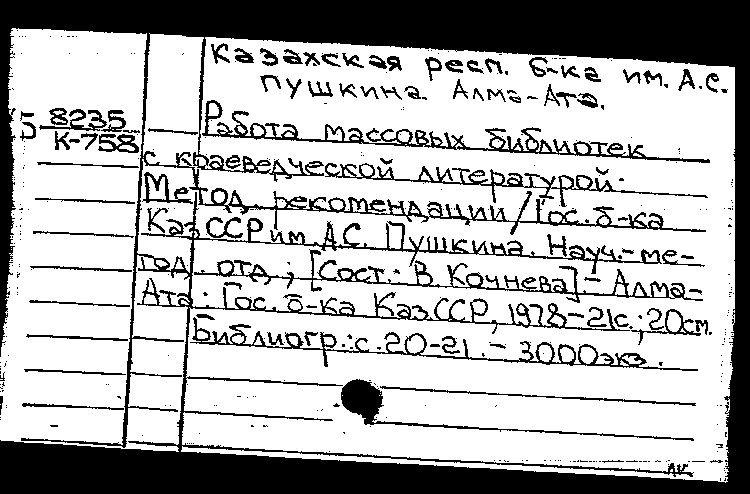 Казахская респ. б-ка им. А.С.
Пушкина. Алма-Ата.
Б 8235
К-758
Работа массовых библиотек
с краеведческой литературой:
Метод. рекомендации / Гос. б-ка
КазССР им. А.С. Пушкина. Науч.-ме-
тод. отд.; [Сост.: В. Кочнева].- Алма-
Ата: Гос. б-ка Каз.ССР, 1978-21с.; 20см.
Библиогр.: с. 20-21. - 3000экз.